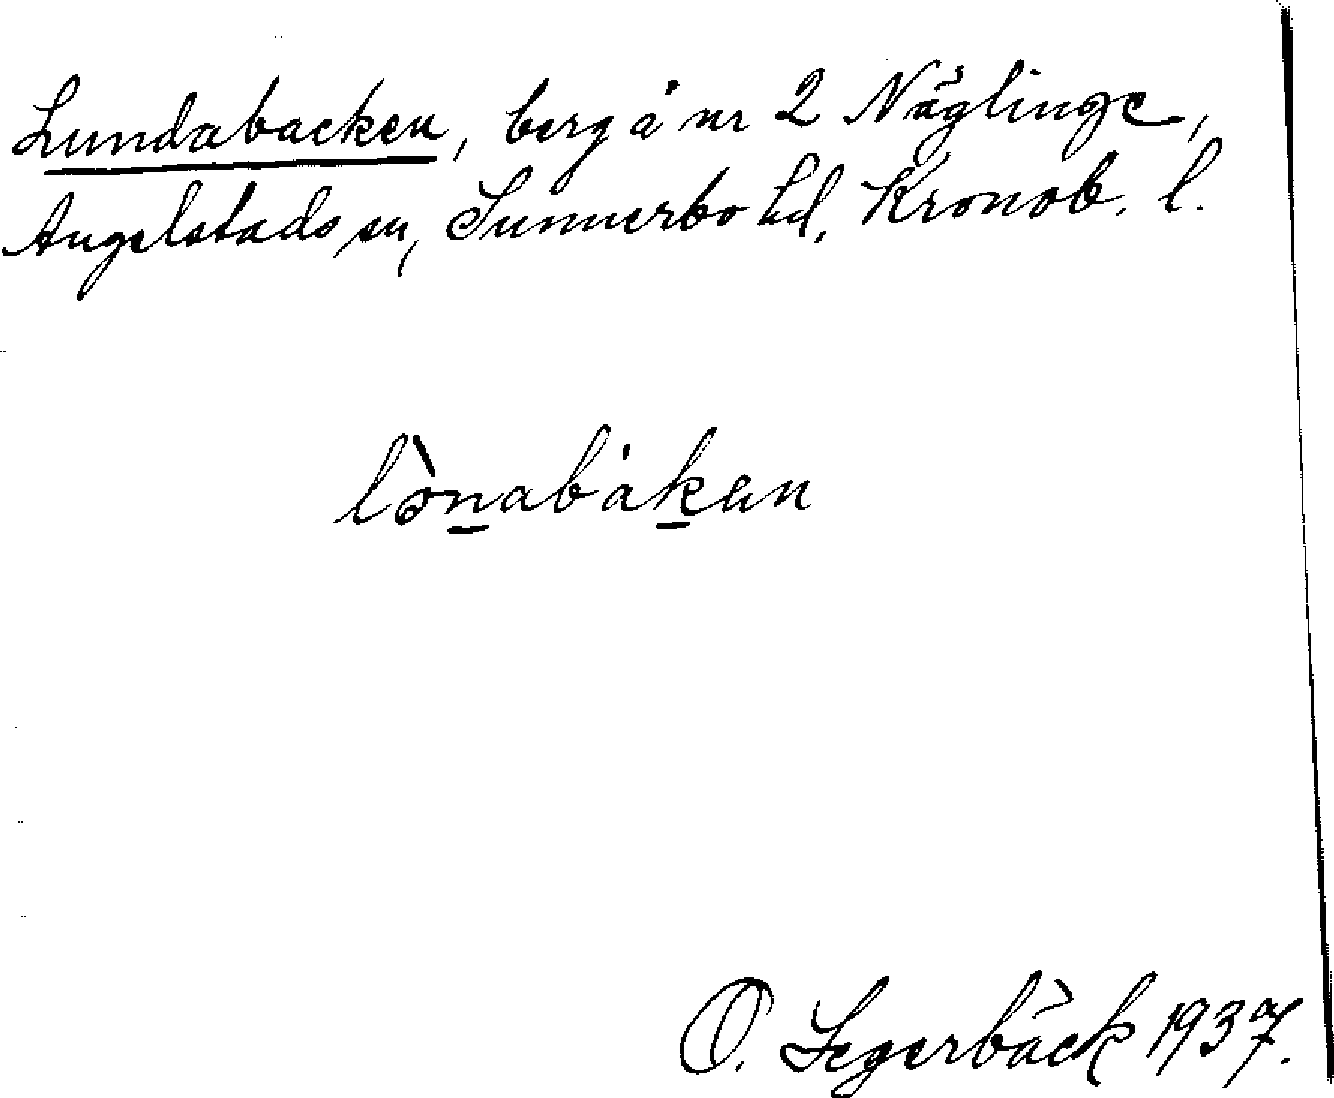 Lundabacken, berg å nr 2 Näglinge,
Angelstads sn, Sunnerbo hd, Kronob. l.
lònabàkan
O. Segerbäck 1937.